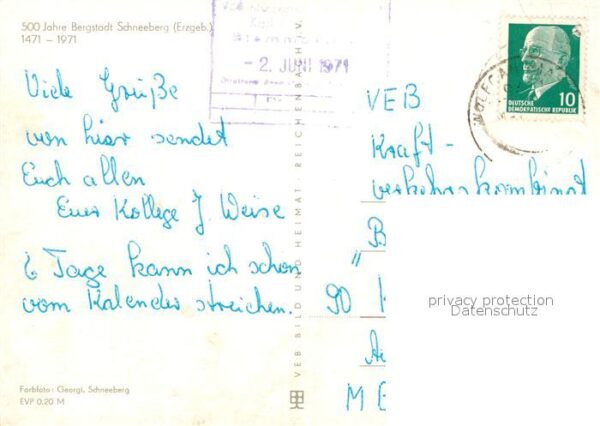 500 Jahre Bergstadt Schneeberg (Erzgeb.)
1471 – 1971
- 2. JUNI 1971
DEUTSCHE
DEMOKRATISCHE REPUBLIK
10
Viele Grüße
von hier sendet
Euch allen
Euer Kollege J. Weise
6 Tage kann ich schon
vom Kalender streichen.
VEB BILD UND HEIMAT REICHENBACH I. V.
VEB
Kraft-
verkehrskombinat
"B
90
privacy protection
Datenschutz
ME
Farbfoto: Georgi, Schneeberg
EVP 0.20 M